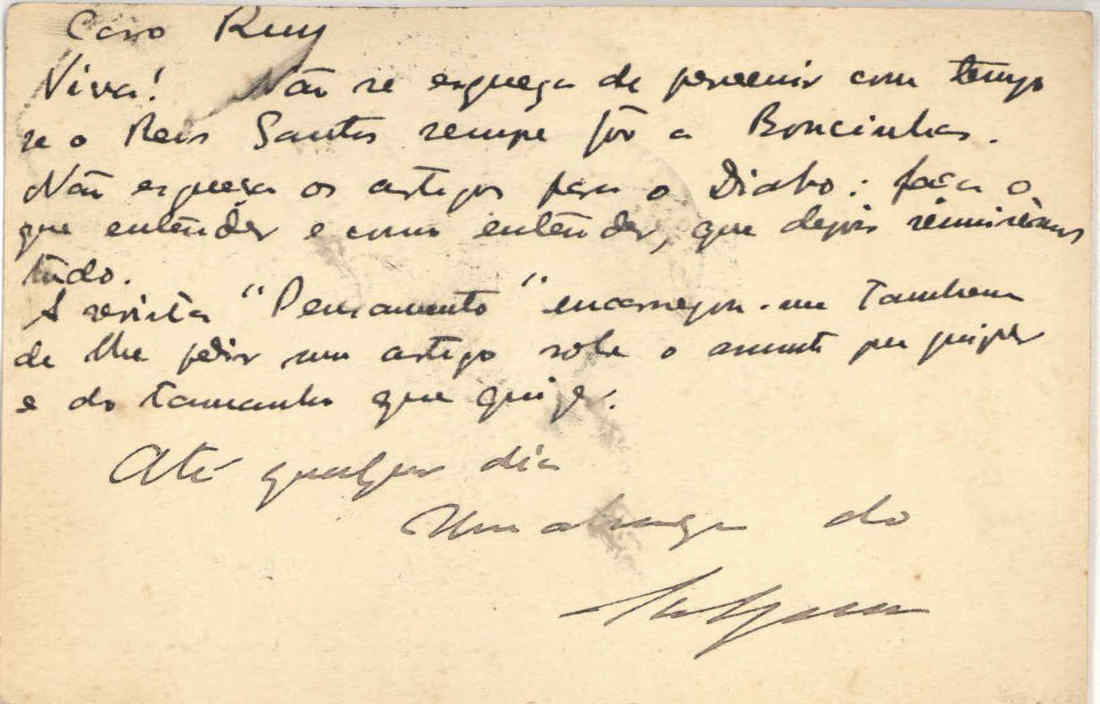 Caro Ruy
Viva! Não se esqueça de prevenir com tempo
se o Reis Santos sempre fôr a Boncinhas.
Não esqueça os artigos para o Diabo: faça o
que entender e como entender, que depois reunirêmos
tudo.
A revista "Pensamento" encarregou-me tambem
de lhe pedir um artigo sobre o assunto que quizer
e do tamanho que quizer.
Até qualquer dia
Um abraço do